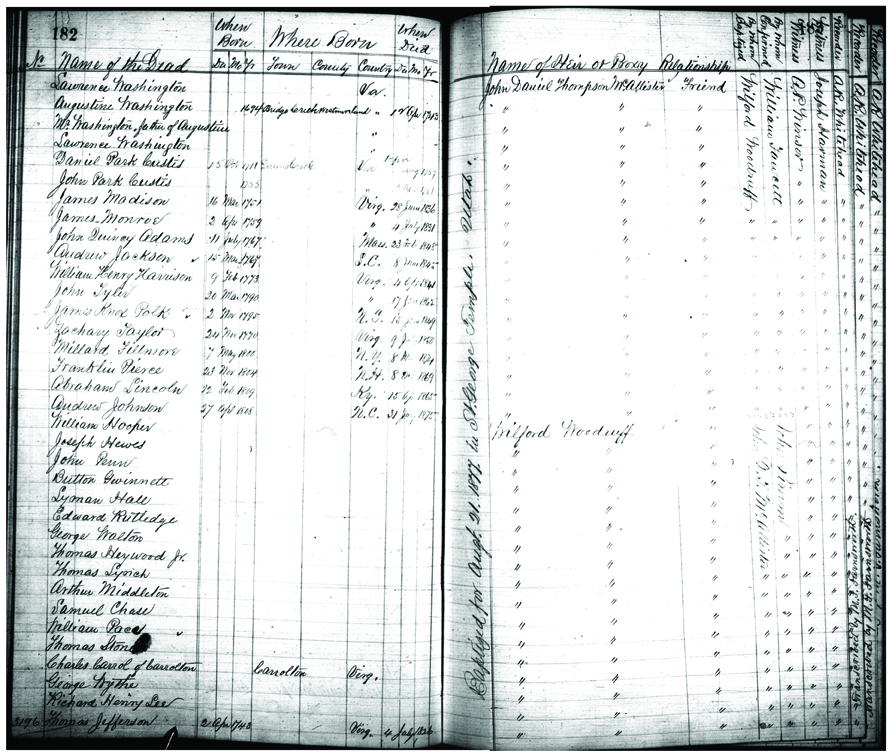 182
When Born Where Born When Died
No Name of the Dead Da Mo Yr Town County Country Da Mo Yr
Lawrence Washington Va.
Augustine Washington 1694 Bridge Creek Westmoreland " 12 Apr 1743
Mr Washington, father of Augustine "
Lawrence Washington "
Daniel Park Custis 15 Oct 1711 Va
John Park Custis 1755 "
James Madison 16 Mar 1751 Virg. 28 June 1836
James Monroe 2 Apr 1759 " 4 July 1831
John Quincy Adams 11 July 1767 Mass. 23 Feb 1848
Andrew Jackson 15 Mar 1767 S.C. 8 June 1845
William Henry Harrison 9 Feb 1773 Virg. 4 Apr 1841
John Tyler 20 Mar 1790 " 17 Jan 1862
James Knox Polk 2 Nov 1795 N.C. 15 June 1849
Zachary Taylor 24 Nov 1770 Virg 9 Jul 1850
Millard Fillmore 7 May 1800 N.Y. 8 Mar 1874
Franklin Pierce 23 Nov 1804 N.H. 8 1869
Abraham Lincoln 12 Feb 1809 Ky. 15 Ap 1865
Andrew Johnson 27 Apr 1808 N.C. 31 July 1875
William Hooper
Joseph Hewes
John Penn
Button Gwinnett
Lyman Hall
Edward Rutledge
George Walton
Thomas Heywood Jr.
Thomas Lynch
Arthur Middleton
Samuel Chase
William Paca "
Thomas Stone
Charles Carrol of Carrolton Carrolton Virg.
George Wythe
Richard Henry Lee
3196 Thomas Jefferson 2 Apr 1743 Virg. 4 July 1826
Baptized for Aug. 21. 1877. in St. George Temple. Utah.
Name of Heir or Proxy Relationship
John Daniel Thompson McAllister Friend
" " "
Wilford Woodruff "
" " "
by whom Baptized Wilford Woodruff "
John D. T. McAllister "
by whom Confirmed William Fawcett "
Witness A. P. Winsor "
Witness Joseph Harman "
Recorder A. K. Whitehead
Recorder A. K. Whitehead "
Recorder A K Whitehead "